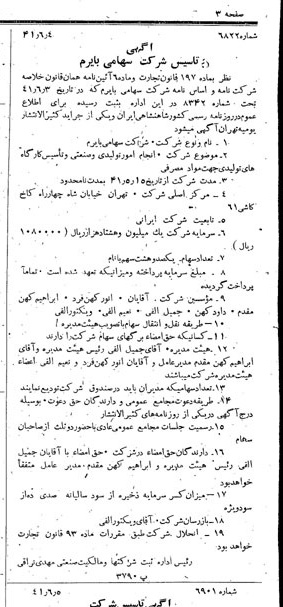 صفحه ۳
شماره ۶۸۲۲ ۴ر۶ر۴۱
آگهی
تاسیس شرکت سهامی بایرم
نظر بماده ۱۹۷ قانون تجارت وماده ۶ آئین نامه همان قانون خلاصه
شرکت نامه و اساس نامه شرکت سهامی بایرم که در تاریخ ۳ر۶ر۴۱
تحت شماره ۸۳۴۲ در این اداره بثبت رسیده برای اطلاع
عموم درروزنامه رسمی کشورشاهنشاهی ایران ویکی از جراید کثیرالانتشار
یومیه تهران آگهی میشود
۱ - نام ونوع شرکت: شرکت سهامی بایرم
۲ - موضوع شرکت: انجام امور تولیدی وصنعتی وتأسیس کارگاه
های تولیدی جهت مواد مصرفی
۳ - مدت شرکت از تاریخ ۱۵ر۵ر۴۱ بمدت نامحدود
۴ - مرکز اصلی شرکت: تهران خیابان شاه چهارراه کاخ
کاشی ۶۱
۵ - تابعیت شرکت ایرانی
۶ - سرمایه شرکت یک میلیون وهشتادهزار ریال (۱۰۸۰۰۰۰
ریال)
۷ - تعداد سهام. یکصد و هشت سهم با نام
۸ - مبلغ سرمایه پرداخته ومیزانیکه تعهد شده است: تماماً
پرداخت گردیده
۹ - مؤسسین شرکت. آقایان انور کهن فرد - ابراهیم کهن
مقدم - داود کهن - جمیل الفی - نعیم الفی - ویکتور الفی
۱۰ - طریقه نقل و انتقال سهام با تصویب هیئت مدیره
۱۱ - کسانیکه حق امضاء برگهای سهام شرکت را دارند
۱۲ - هیئت مدیره: آقای جمیل الفی رئیس هیئت مدیره وآقای
ابراهیم کهن مقدم مدیرعامل و آقایان انور کهن فرد و نعیم الفی اعضاء
هیئت مدیره شرکت میباشند
۱۳. تعداد سهامیکه مدیران باید در صندوق شرکت تودیع نمایند
۱۴ - طریقه دعوت مجامع عمومی و دارندگان حق دعوت: بوسیله
درج آگهی در یکی از روزنامه های کثیرالانتشار
۱۵ - رسمیت جلسات مجامع عمومی عادی با حضور دو ثلث از صاحبان
سهام
۱۶ - دارندگان حق امضاء در شرکت: حق امضاء با آقایان جمیل
الفی رئیس هیئت مدیره و ابراهیم کهن مقدم مدیر عامل متفقاً
خواهد بود
۱۷ - میزان کسر سرمایه ذخیره از سود سالیانه صدی ده از
سود ویژه
۱۸ - بازرسان شرکت. آقای ویکتور الفی
۱۹ - انحلال شرکت طبق مقررات ماده ۹۳ قانون تجارت
خواهد بود
رئیس اداره ثبت شرکتها ومالکیت صنعتی مهدی نراقی
پ ۳۷۹۰
شماره ۶۹۰۱ ۵ر۶ر۴۱
آگهی تاسیس شرکت